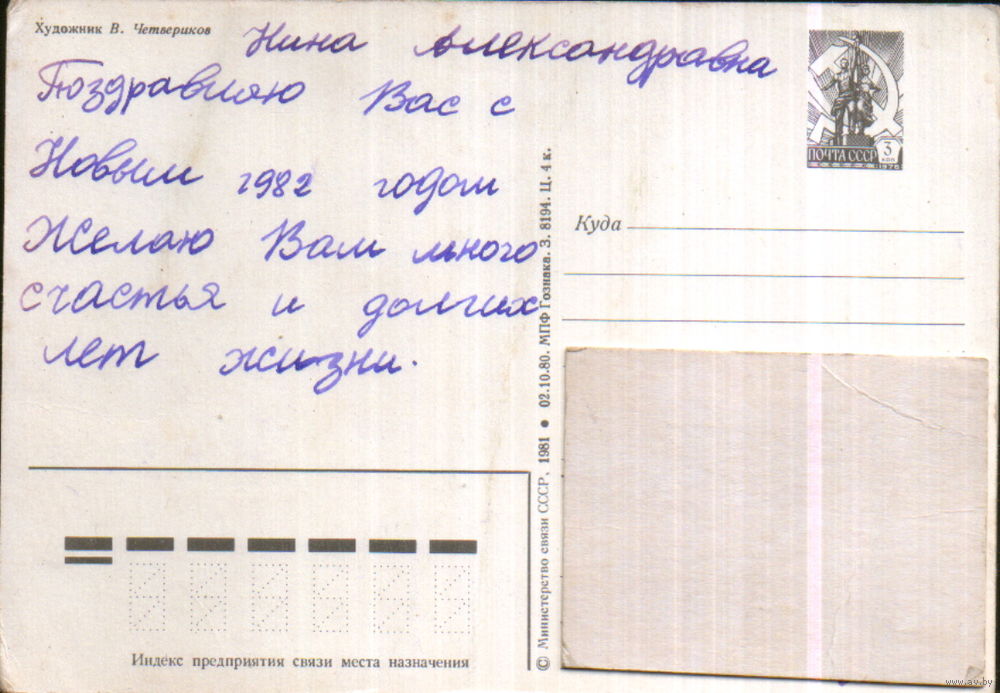 Художник В. Четвериков
Нина Александравна
Поздравляю Вас с
Новым 1982 годом
Желаю Вам много
счастья и долгих
лет жизни.
ПОЧТА СССР 3 коп
1976
Куда
© Министерство связи СССР, 1981 • 02.10.80. МПФ Гознака. З. 8194. Ц. 4 к.
Индекс предприятия связи места назначения
www.ay.by